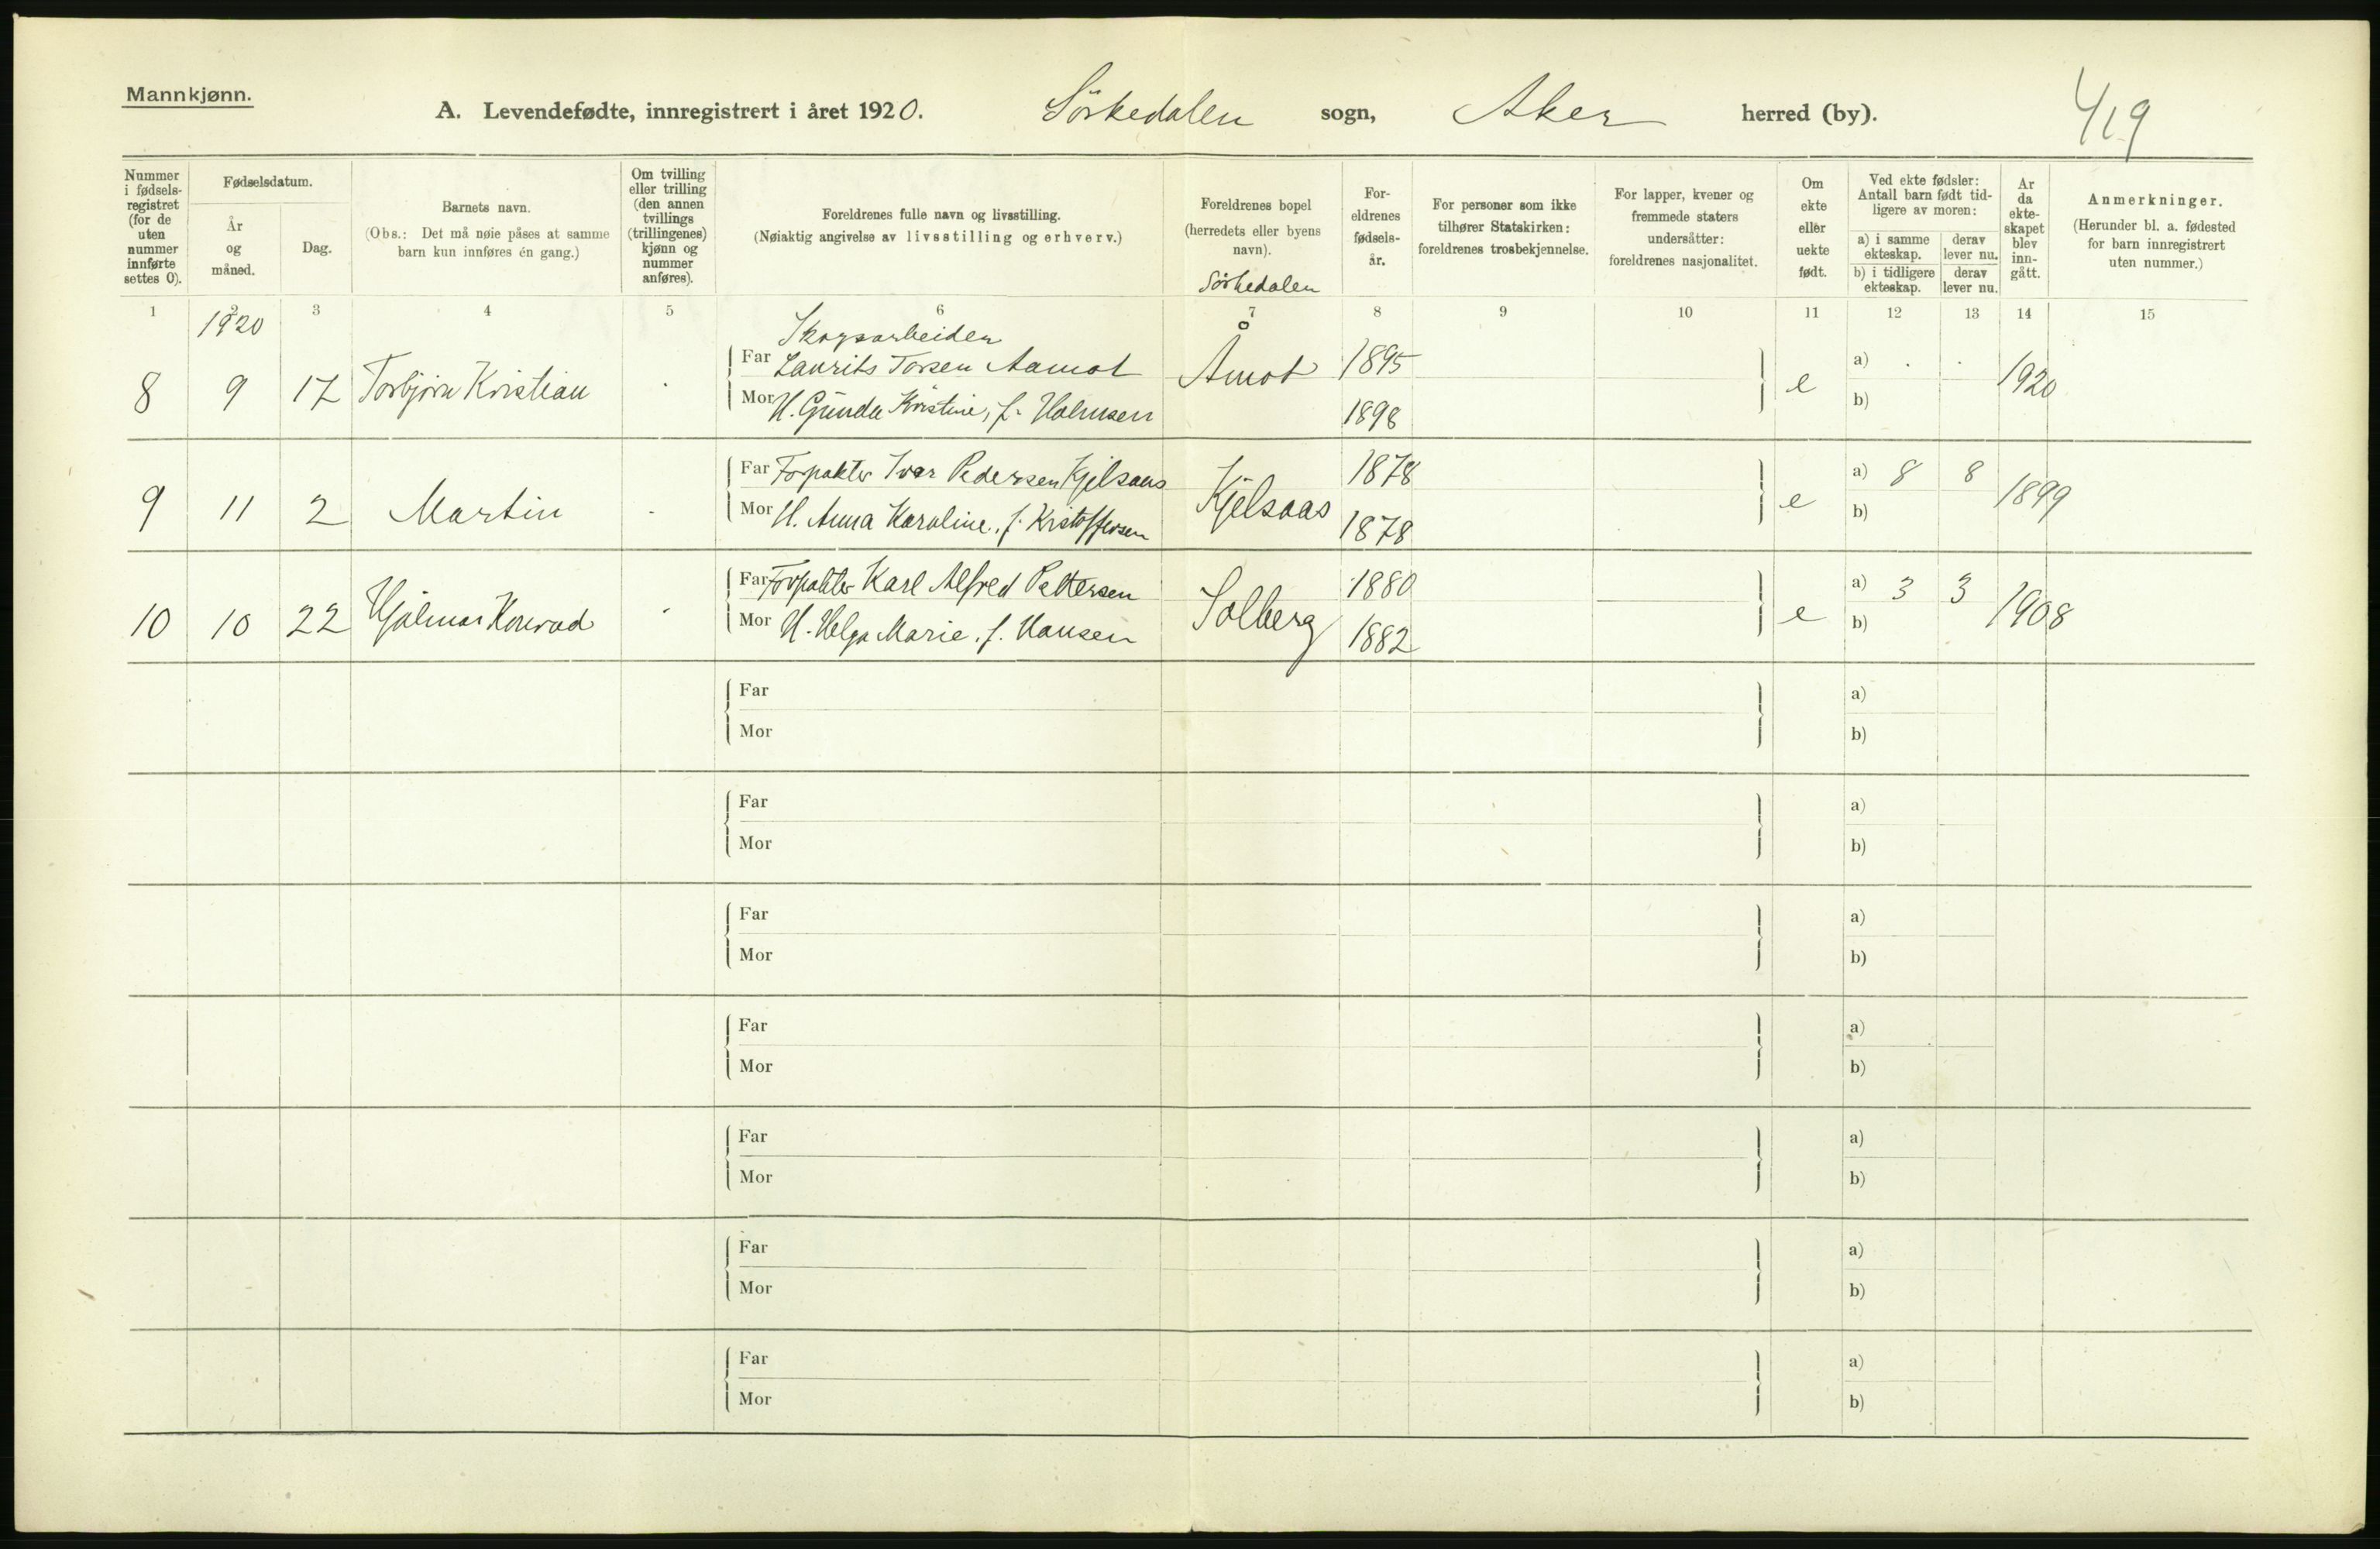 Mannkjønn.
A. Levendefødte, innregistrert i året 1920. Sörkedalen sogn, Aker herred (by).
419
Nummer i fødsels-registret (for de uten nummer innførte settes 0).
Fødselsdatum.
År og måned.
Dag.
Barnets navn.
(Obs.: Det må nøie påses at samme barn kun innføres én gang.)
Om tvilling eller trilling (den annen tvillings (trillingenes) kjønn og nummer anføres).
Foreldrenes fulle navn og livsstilling.
(Nøiaktig angivelse av livsstilling og erhverv.)
Foreldrenes bopel (herredets eller byens navn).
Sörkedalen
For-eldrenes fødsels-år.
For personer som ikke tilhører Statskirken: foreldrenes trosbekjennelse.
For lapper, kvener og fremmede staters undersåtter: foreldrenes nasjonalitet.
Om ekte eller uekte født.
Ved ekte fødsler: Antall barn født tid-ligere av moren:
a) i samme ekteskap.
derav lever nu.
b) i tidligere ekteskap.
derav lever nu.
År da ekte-skapet blev inn-gått.
Anmerkninger.
(Herunder bl. a. fødested for barn innregistrert uten nummer.)
1 2 3 4 5 6 7 8 9 10 11 12 13 14 15
1920
Skogsarbeider
8 9 17 Torbjörn Kristian Far Laurits Torsen Aamot Åmot 1895 e a) 1920
Mor H. Gunda Kristine, f. Halmsen 1898 b)
9 11 2 Martin Far Forpakter Ivar Pedersen Kjelsaas Kjelsaas 1878 e a) 8 8 1899
Mor H. Anna Karoline, f. Kristoffersen 1878 b)
10 10 22 Hjalmar Konrad Far Forpakter Karl Alfred Pettersen Solberg 1880 e a) 3 3 1908
Mor H. Helga Marie, f. Hansen 1882 b)
Far a)
Mor b)
Far a)
Mor b)
Far a)
Mor b)
Far a)
Mor b)
Far a)
Mor b)
Far a)
Mor b)
Far a)
Mor b)